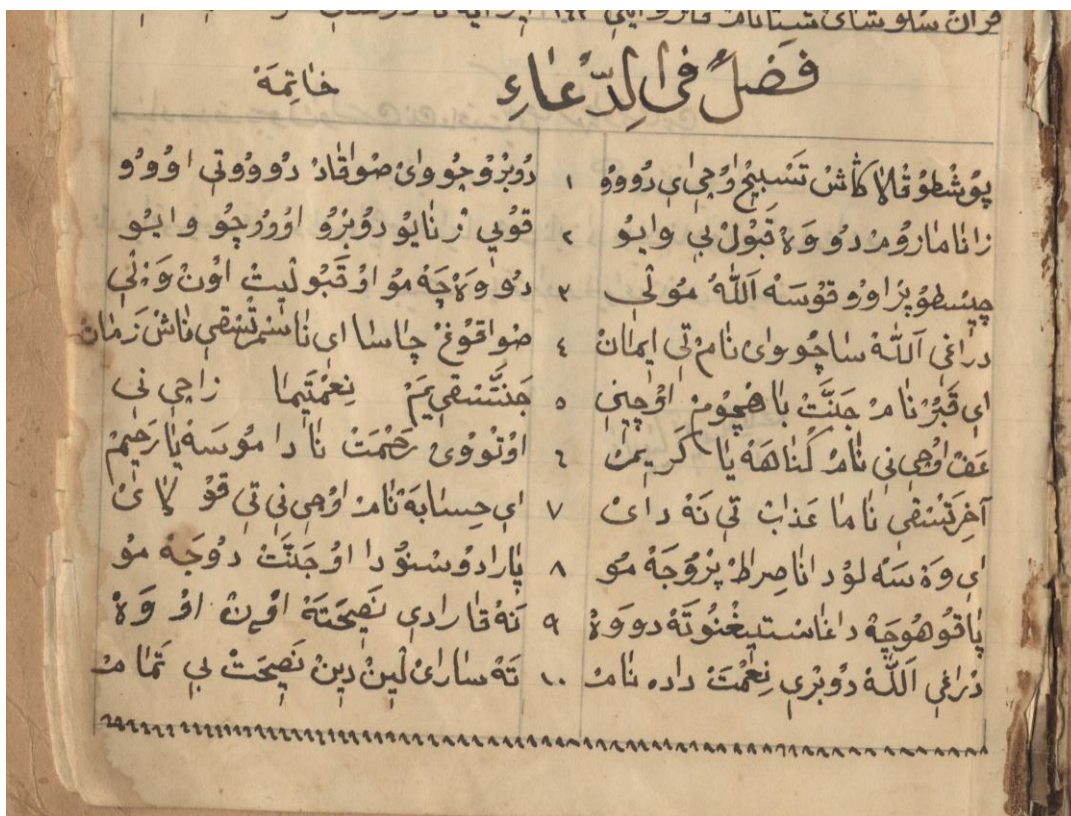 فَصْلٌ فِي الدُّعَاءِ خَاتِمَة
پوشْطوُ قْلاٰکاٰشْ تَسْبِيحْ اوُچٖى اٖى دُوووُ ١ دوُبْروُ چوُواىْ صْواقاٰدْ دوُووتٖى اوُووُ
زاناٰماٰزوُمْ دوُوَهْ قَبوُلْ بٖى وايوُ ٢ قوُيٖى زْناٰيوُ دوُبْروُ اوُوروُچوُ وايوُ
چيسْطوُ پْراووُ قوُسَه اَللّٰهُ موُلٖى ٣ دوُوَهْ چَهْ موُ اوُ قَبوُليتْ اوُنْ وَهْلٖى
دْراغٖى اَللّٰهْ ساٰچوُواىْ ناٰمْ تٖى اٖيماٰنْ ٤ صْواقوُغْ چاٰساٰ اٖى ناٰسْمْرْتْسْقٖى ناٰشْ زَماٰنْ
اٖى قَبُرْ ناٰمْ جَنَّتْ باٰهْچوُمْ اوُچٖينٖى ٥ جَنَّتْسْقٖيمْ نِعْمَتٖيماٰ زاٰچٖى نٖى
عَفْ اوُچٖى نٖى ناٰمْ كُناٰهَه ياٰ كَرٖيمْ ٦ اوُتْووُىْ رَحْمَتْ ناٰداٰ موُسَه ياٰ رَحٖيمْ
آخِرَتْسْقٖى ناٰماٰ عَذاٰبْ تٖى نَهْ داٰىْ ٧ اٖى حِساٰبَهْ ناٰمْ اوُچٖى نٖى تٖى قوُلاٰىْ
اٖى وَهْسَهلوُ داٰ ناٰ صِراٰطْ پْرْوُجَهْ موُ ٨ پاٰ راٰدوُسْنوُ داٰ اوُ جَنَّتْ دوُجَهْ موُ
ياٰقوُ هوُچَهْ داٰغاٰ سْتيغْنوُتَهْ دوُوَهْ ٩ نَهْ قاٰراٰدٖى نَصٖيحَتَهْ اوُنْ اوُ وَهْ
دْراغٖى اَللّٰهْ دوُبْرٖى نِعْمَتْ داٰدَه ناٰمْ ١٠ تَهْ ساٰراٰىْ لٖينْ دٖينْ نَصٖيحَتْ بٖى تَماٰمْ